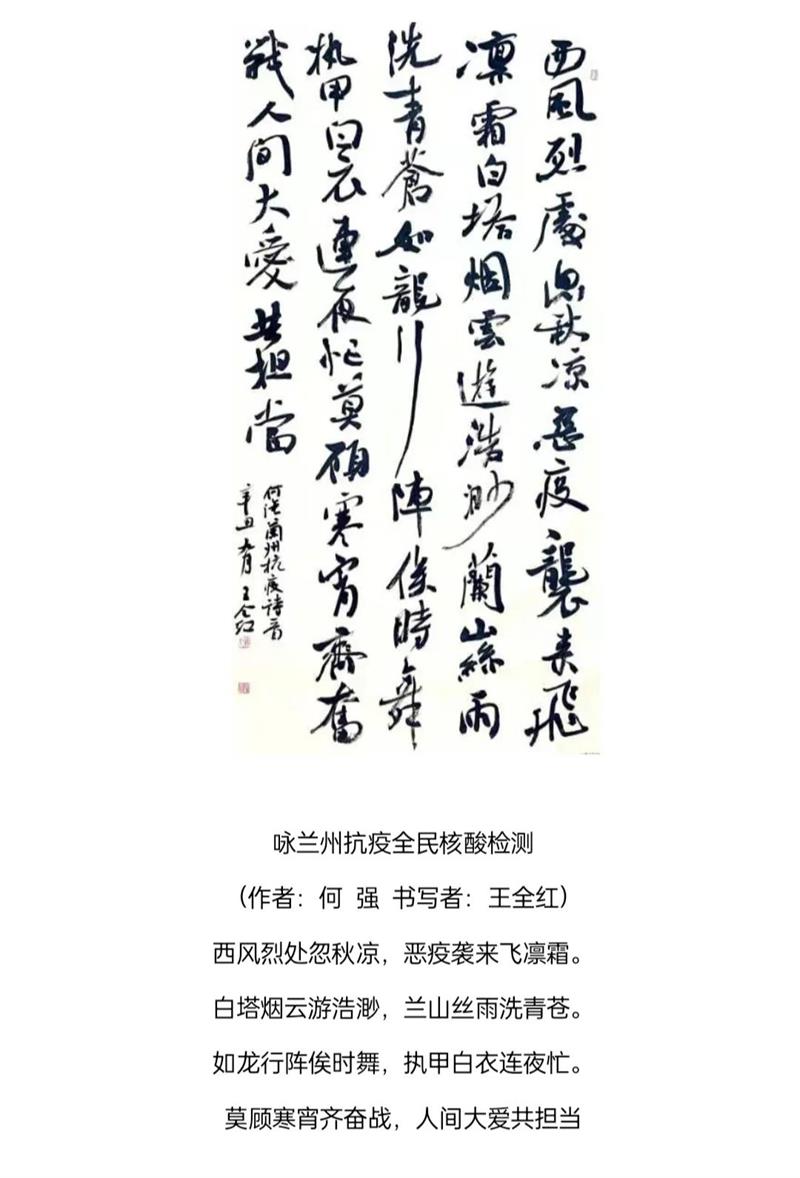 西風烈處忽秋凉惡疫襲来飛
凛霜白塔烟雲遊浩渺蘭山絲雨
洗青蒼如龍行陣俟時舞
执甲白衣連夜忙莫顧寒宵齊奮
戰人间大愛共担當
何强蘭州抗疫詩一首
辛丑九月王全红
咏兰州抗疫全民核酸检测
（作者：何 强 书写者：王全红）
西风烈处忽秋凉，恶疫袭来飞凛霜。
白塔烟云游浩渺，兰山丝雨洗青苍。
如龙行阵俟时舞，执甲白衣连夜忙。
莫顾寒宵齐奋战，人间大爱共担当